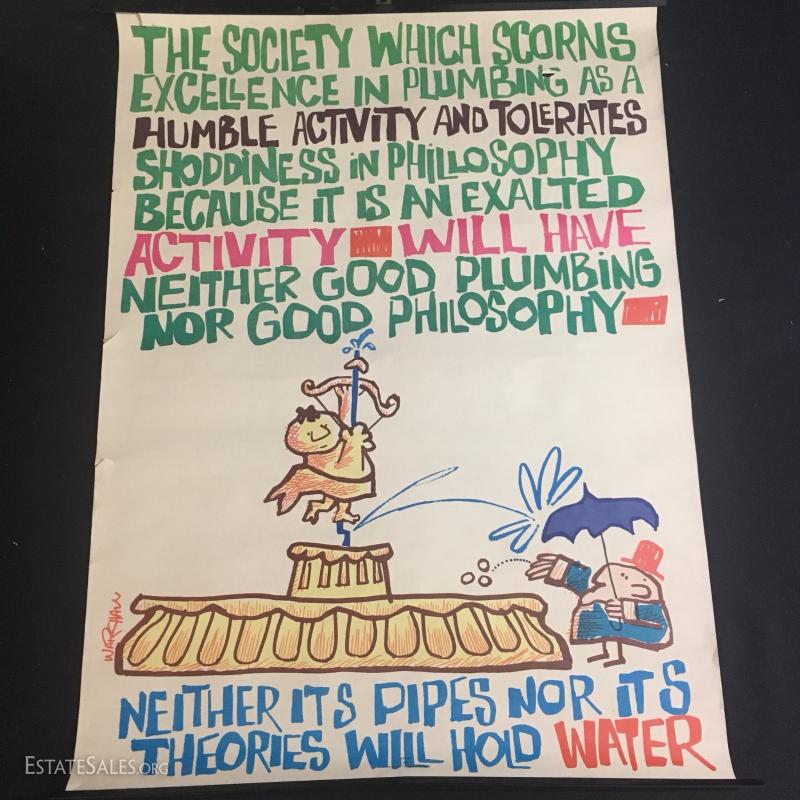 THE SOCIETY WHICH SCORNS
EXCELLENCE IN PLUMBING AS A
HUMBLE ACTIVITY AND TOLERATES
SHODDINESS IN PHILLOSOPHY
BECAUSE IT IS AN EXALTED
ACTIVITY WILL HAVE
NEITHER GOOD PLUMBING
NOR GOOD PHILOSOPHY
WARSHAW
NEITHER ITS PIPES NOR ITS
THEORIES WILL HOLD WATER
ESTATESALES.ORG